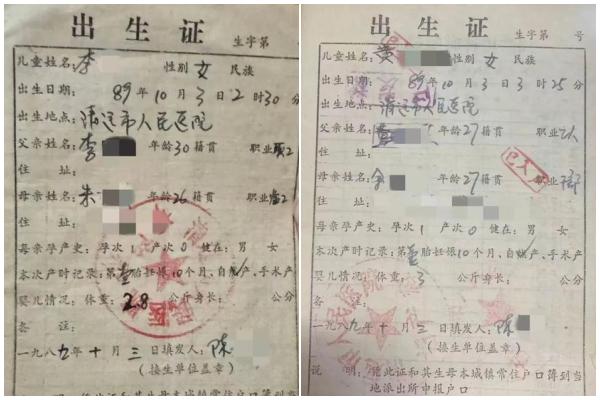 出生证
生字第
儿童姓名:李 性别女 民族
出生日期:89年10月3日2时30分
出生地点:清远市人民医院
父亲姓名:李 年龄30籍贯 职业
住址:
母亲姓名:朱 年龄26籍贯 职业
住址:
母亲孕产史:孕次1产次0健在:男 女
本次产时记录:第壹胎妊娠10个月、自然产、手术产
婴儿情况:体重:2.8公斤身长: 公分
备注:
一九八九年十月三日填发人:陈
(接生单位盖章)
出生证
生字第 号
儿童姓名:黄 性别女 民族
出生日期:89年10月3日3时25分
出生地点:清远市人民医院
父亲姓名: 年龄27籍贯 职业工人
住址:
已入
母亲姓名: 年龄27籍贯 职业
住址:
母亲孕产史:孕次1产次0健在:男 女
本次产时记录:第壹胎妊娠10个月、自然产、手术产
婴儿情况:体重:3公斤身长: 公分
备注:
一九八九年十月三日填发人:陈
(接生单位盖章)
说明:凭此证和其生母本城镇常住户口簿到当
地派出所申报户口